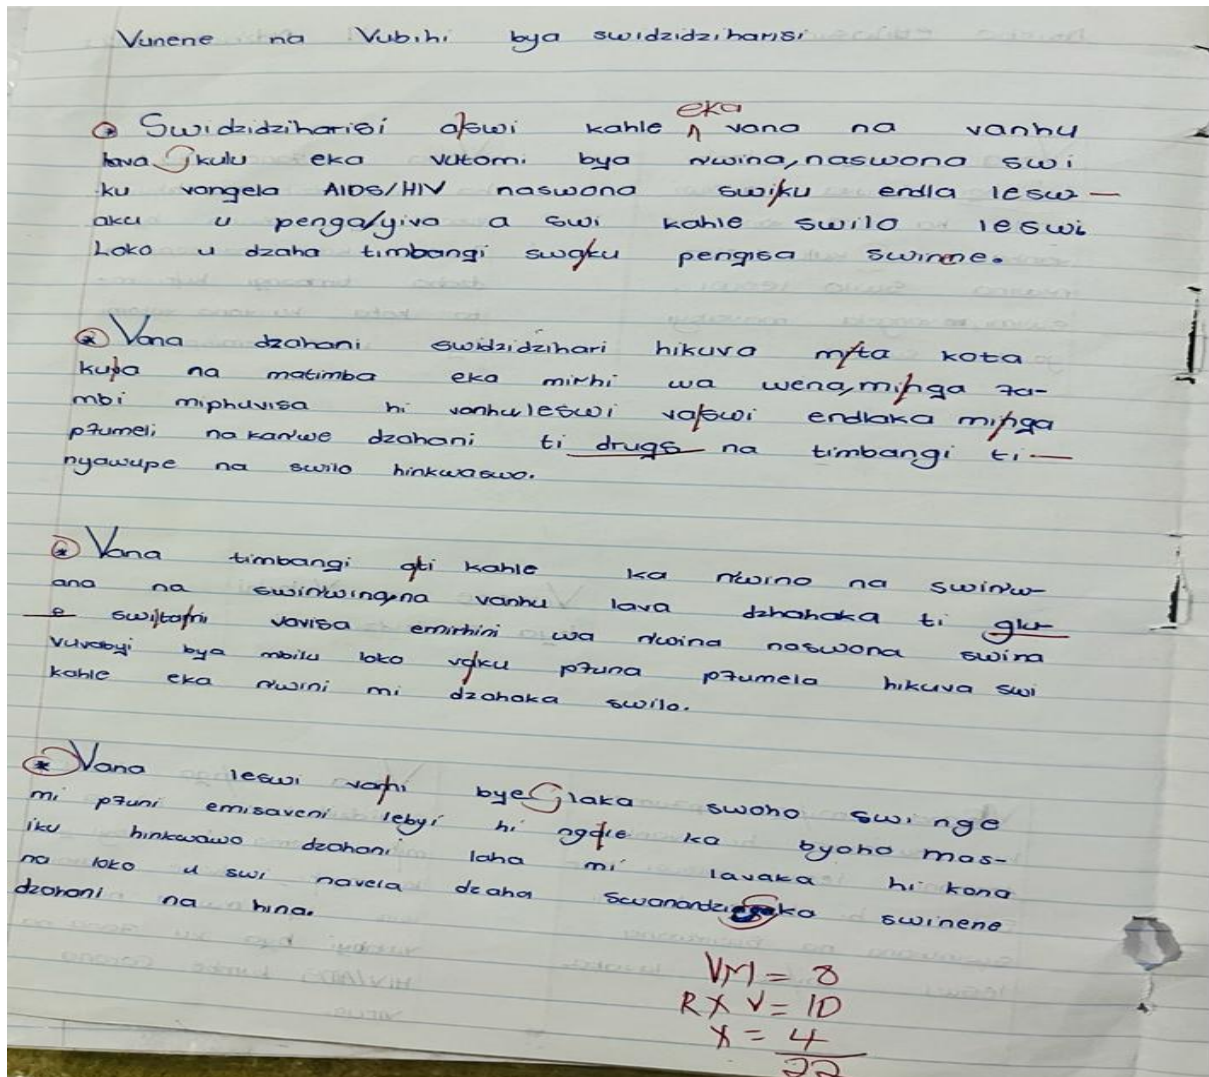 Vunene na Vubihi bya swidzidziharisi
eka
Swidzidziharisi aswi kahle vana na vanhu
lava kulu eka vutomi bya n'wina, naswona swi
ku vangela AIDS/HIV naswona swiku endla lesw-
aku u penga/yivo a swi kahle swilo leswi
Loko u dzaha timbangi swaku pengisa swinene.
* Vana dzahani swidzidzihari hikuva mita kota
kuva na matimba eka mirhi wa wena, minga ta-
mbi miphuvisa hi vanhu leswi vaswi endlaka minga
pfumeli nakan'we dzahani ti drugs na timbangi ti-
nyawupe na swilo hinkwaswo.
* Vana timbangi ati kahle ka n'wino na swin'w-
ana na swin'wingana vanhu lava dzhahaka ti glu-
e switafni vavisa emirhini wa n'wina naswona swina
vuvabyi bya mbilu loko vaku pfuna pfumela hikuva swi
kahle eka n'wini mi dzahaka swilo.
* Vana leswi vahi bye laka swoho swi nge
mi pfuni emisaveni lebyi hi ngqie ka byoho mas-
iku hinkwawo dzahani laha mi lavaka hi kona
na loko u swi navela dzaha swanandzi ka swinene
dzahani na hina.
VM = 8
R X V = 10
X = 4
22